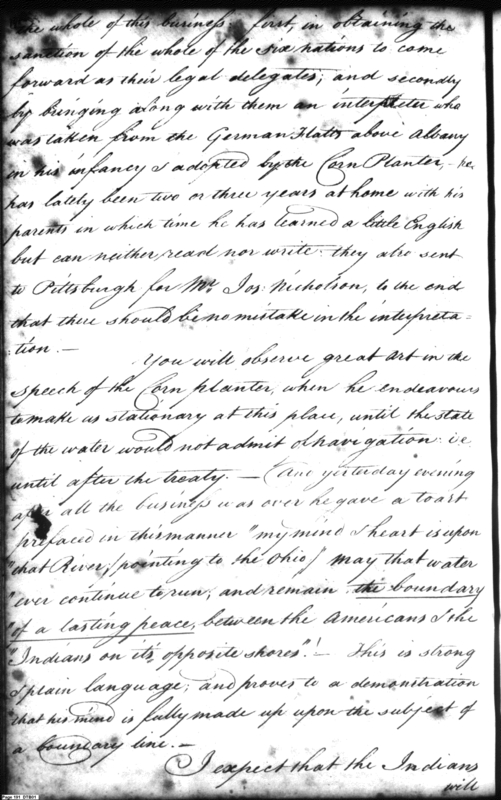 the whole of this business: first in obtaining the
sanction of the whole of the six nations to come
forward as their legal delegates; and secondly
by bringing along with them an interpreter who
was taken from the German Flatts above Albany
in his infancy & adopted by the Corn Planter, - he
has lately been two or three years at home with his
parents in which time he has learned a little English
but can neither read nor write: they also sent
to Pittsburgh for Mr. Jos: Nicholson, to the end
that there should be no mistake in the interpreta-
:tion. -
You will observe great art in the
speech of the Corn planter, when he endeavours
to make us stationary at this place, until the state
of the water would not admit of navigation: i.e.
until after the treaty. - And yesterday evening
after all the business was over he gave a toast
prefaced in this manner "my mind & heart is upon
"that River, [pointing to the Ohio] may that water
"ever continue to run, and remain the boundary
"of a lasting peace, between the Americans & the
"Indians on its opposite shores"! - This is strong
& plain language; and proves to a demonstration
that his mind is fully made up upon the subject of
a boundary line. -
I expect that the Indians
will